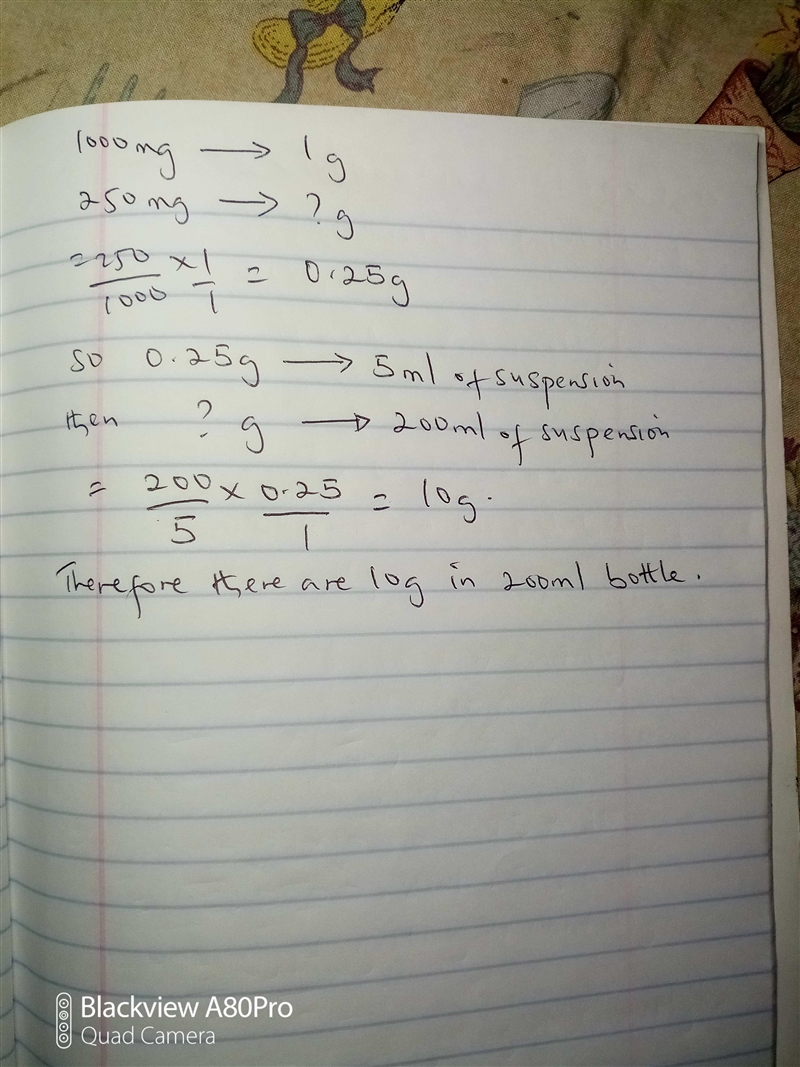 1000mg → 1g
250mg → ? g
= 250/1000 × 1/1 = 0.25g
so 0.25g → 5ml of suspension
then ? g → 200ml of suspension
= 200/5 × 0.25/1 = 10g.
Therefore there are 10g in 200ml bottle.
Blackview A80Pro
Quad Camera